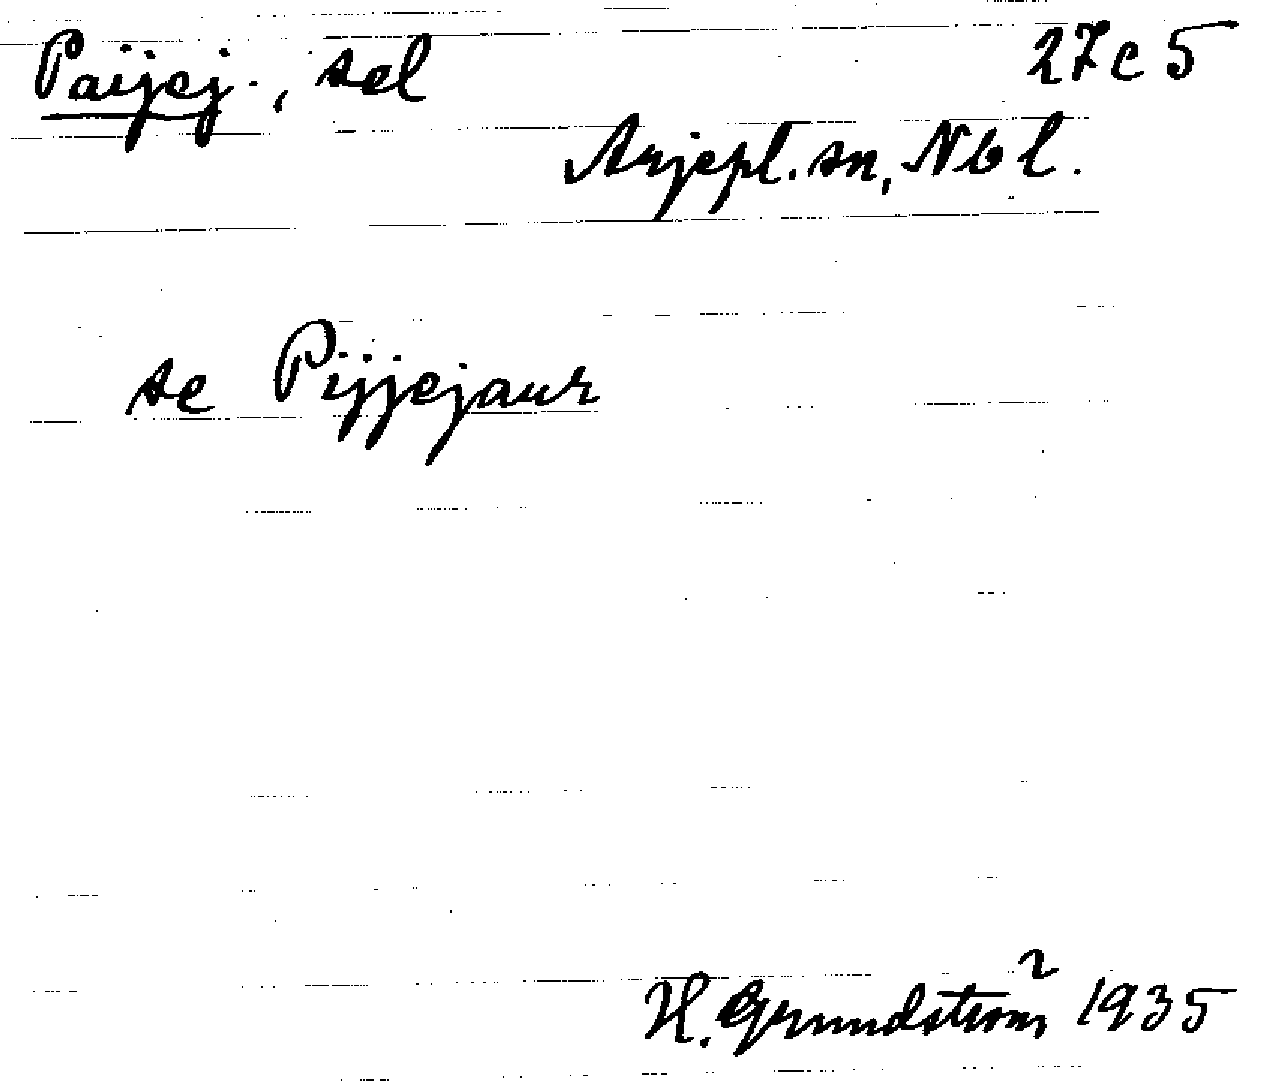 Paijej., sel 27 c 5
Arjepl. sn, Nbl.
se Pijjejaur
H. Grundström 1935